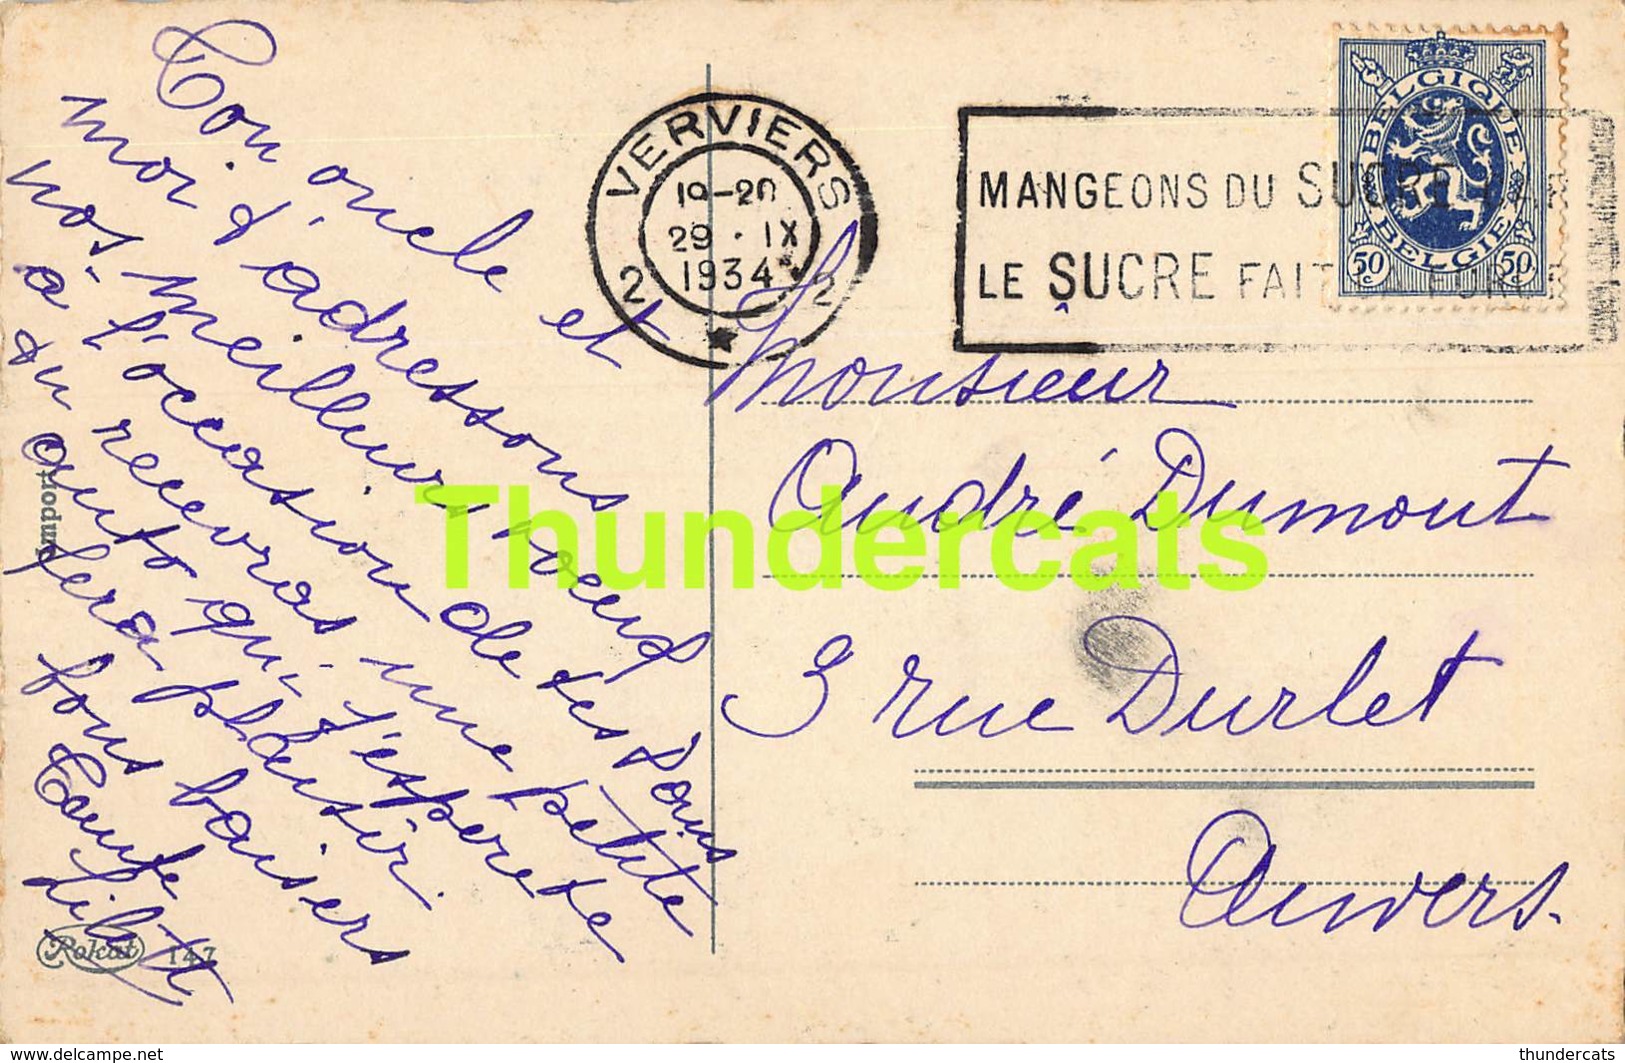 Ton oncle et
moi t'adressons
nos meilleurs voeux
à l'occasion de tes 7 ans
tu recevras une petite
auto qui, j'espère te
fera plaisir.
bons baisers
Tante
Imporbor
Rokat 147
VERVIERS
19-20
29 · IX
1934
2 2
MANGEONS DU SUCRE
LE SUCRE FAIT LA FORCE
BELGIQUE
BELGIE
50c 50c
Monsieur
André Dumont
3 rue Durlet
Anvers.
Thundercats
www.delcampe.net
thundercats